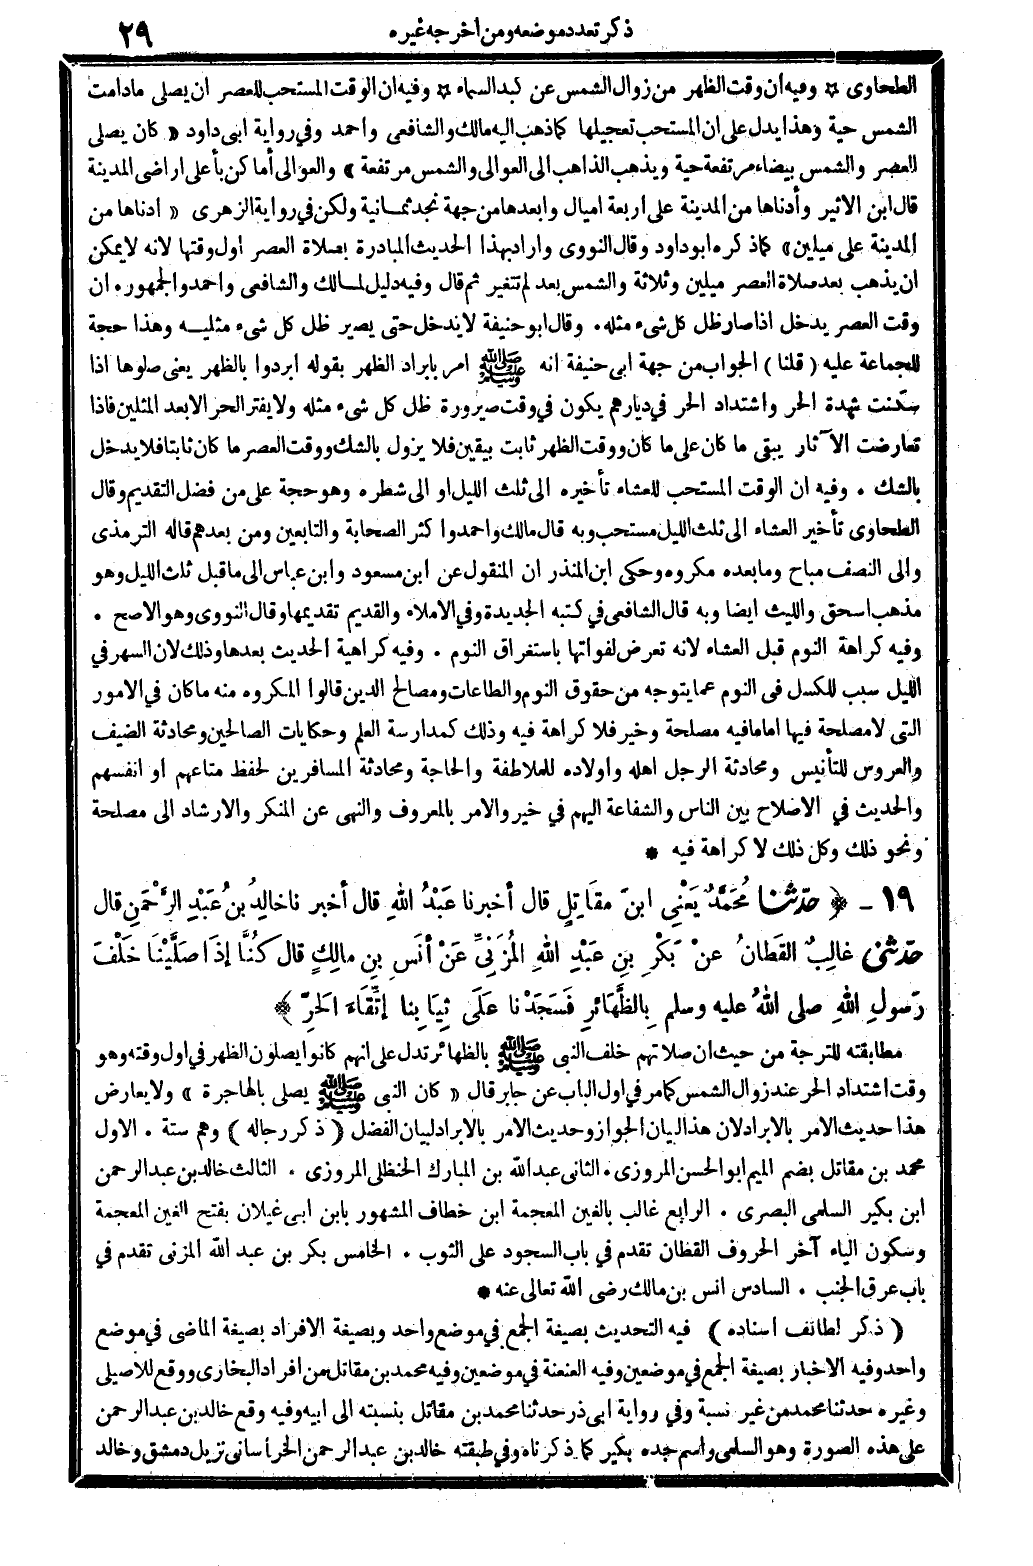 ذكر تعدد موضعه ومن اخرجه غيره ٢٩
الطحاوى * وفيه ان وقت الظهر من زوال الشمس عن كبد السماء * وفيه ان الوقت المستحب للعصر ان يصلى مادامت
الشمس حية وهذا يدل على ان المستحب تعجيلها كما ذهب اليه مالك والشافعى واحمد وفى رواية ابى داود « كان يصلى
العصر والشمس بيضاء مرتفعة حية ويذهب الذاهب الى العوالى والشمس مرتفعة » والعوالى أماكن بأعلى اراضى المدينة
قال ابن الاثير وأدناها من المدينة على اربعة اميال وابعدها من جهة نجد ثمانية ولكن فى رواية الزهرى « ادناها من
المدينة على ميلين » كما ذكره ابو داود وقال النووى واراد بهذا الحديث المبادرة بصلاة العصر اول وقتها لانه لا يمكن
ان يذهب بعد صلاة العصر ميلين وثلاثة والشمس بعد لم تتغير ثم قال وفيه دليل لمالك والشافعى واحمد والجمهور . ان
وقت العصر يدخل اذا صار ظل كل شىء مثله . وقال ابو حنيفة لا يدخل حتى يصير ظل كل شىء مثليه وهذا حجة
للجماعة عليه ( قلنا ) الجواب من جهة ابى حنيفة انه ﷺ امر بابراد الظهر بقوله ابردوا بالظهر يعنى صلوها اذا
سكنت شدة الحر واشتداد الحر فى ديارهم يكون فى وقت صيرورة ظل كل شىء مثله ولا يفتر الحر الا بعد المثلين فاذا
تعارضت الآثار يبقى ما كان على ما كان ووقت الظهر ثابت بيقين فلا يزول بالشك ووقت العصر ما كان ثابتا فلا يدخل
بالشك . وفيه ان الوقت المستحب للعشاء تأخيره الى ثلث الليل او الى شطره وهو حجة على من فضل التقديم وقال
الطحاوى تأخير العشاء الى ثلث الليل مستحب وبه قال مالك واحمد واكثر الصحابة والتابعين ومن بعدهم قاله الترمذى
والى النصف مباح وما بعده مكروه وحكى ابن المنذر ان المنقول عن ابن مسعود وابن عباس الى ما قبل ثلث الليل وهو
مذهب اسحق والليث ايضا وبه قال الشافعى فى كتبه الجديدة وفى الاملاء والقديم تقديمها وقال النووى وهو الاصح .
وفيه كراهة النوم قبل العشاء لانه تعرض لفواتها باستغراق النوم . وفيه كراهية الحديث بعدها وذلك لان السهر فى
الليل سبب للكسل فى النوم عما يتوجه من حقوق النوم والطاعات ومصالح الدين قالوا المكروه منه ما كان فى الامور
التى لا مصلحة فيها اما ما فيه مصلحة وخير فلا كراهة فيه وذلك كمدارسة العلم وحكايات الصالحين ومحادثة الضيف
والعروس للتأنيس ومحادثة الرجل اهله واولاده للملاطفة والحاجة ومحادثة المسافرين لحفظ متاعهم او انفسهم
والحديث فى الاصلاح بين الناس والشفاعة اليهم فى خير والامر بالمعروف والنهى عن المنكر والارشاد الى مصلحة
ونحو ذلك وكل ذلك لا كراهة فيه *
١٩ - ﴿ حدثنا مُحَمَّدٌ يَعْنِي ابنَ مقاتِلٍ قال أخبرنا عَبْدُ اللهِ قال أخبرنا خالِدُ بنُ عَبْدِ الرَّحْمٰنِ قال
حدثنى غالِبٌ القَطانُ عنْ بَكْرِ بنِ عَبْدِ اللهِ المُزَنِيِّ عَنْ أنَسِ بنِ مالِكٍ قال كُنَّا إذَا صَلَّيْنَا خَلْفَ
رَسولِ اللهِ صلى اللهُ عليه وسلم بِالظَّهَائِرِ فَسَجَدْنا عَلَى ثِيَابِنا اتِّقَاءَ الحَرِّ ﴾
مطابقته للترجمة من حيث ان صلاتهم خلف النبى ﷺ بالظهائر تدل على انهم كانوا يصلون الظهر فى اول وقته وهو
وقت اشتداد الحر عند زوال الشمس كما مر فى اول الباب عن جابر قال « كان النبى ﷺ يصلى بالهاجرة » ولا يعارض
هذا حديث الامر بالابراد لان هذا لبيان الجواز وحديث الامر بالابراد لبيان الفضل ( ذكر رجاله ) وهم ستة . الاول
محمد بن مقاتل بضم الميم ابو الحسن المروزى . الثانى عبد الله بن المبارك الحنظلى المروزى . الثالث خالد بن عبد الرحمن
ابن بكير السلمى البصرى . الرابع غالب بالغين المعجمة ابن خطاف المشهور بابن ابى غيلان بفتح الغين المعجمة
وسكون الياء آخر الحروف القطان تقدم فى باب السجود على الثوب . الخامس بكر بن عبد الله المزنى تقدم فى
باب عرق الجنب . السادس انس بن مالك رضى الله تعالى عنه *
( ذكر لطائف اسناده ) فيه التحديث بصيغة الجمع فى موضع واحد وبصيغة الافراد بصيغة الماضى فى موضع
واحد وفيه الاخبار بصيغة الجمع فى موضعين وفيه العنعنة فى موضعين وفيه محمد بن مقاتل من افراد البخارى ووقع للاصيلى
وغيره حدثنا محمد من غير نسبة وفى رواية ابى ذر حدثنا محمد بن مقاتل بنسبته الى ابيه وفيه وقع خالد بن عبد الرحمن
على هذه الصورة وهو السلمى واسم جده بكير كما ذكرناه وفى طبقته خالد بن عبد الرحمن الخراسانى نزيل دمشق وخالد